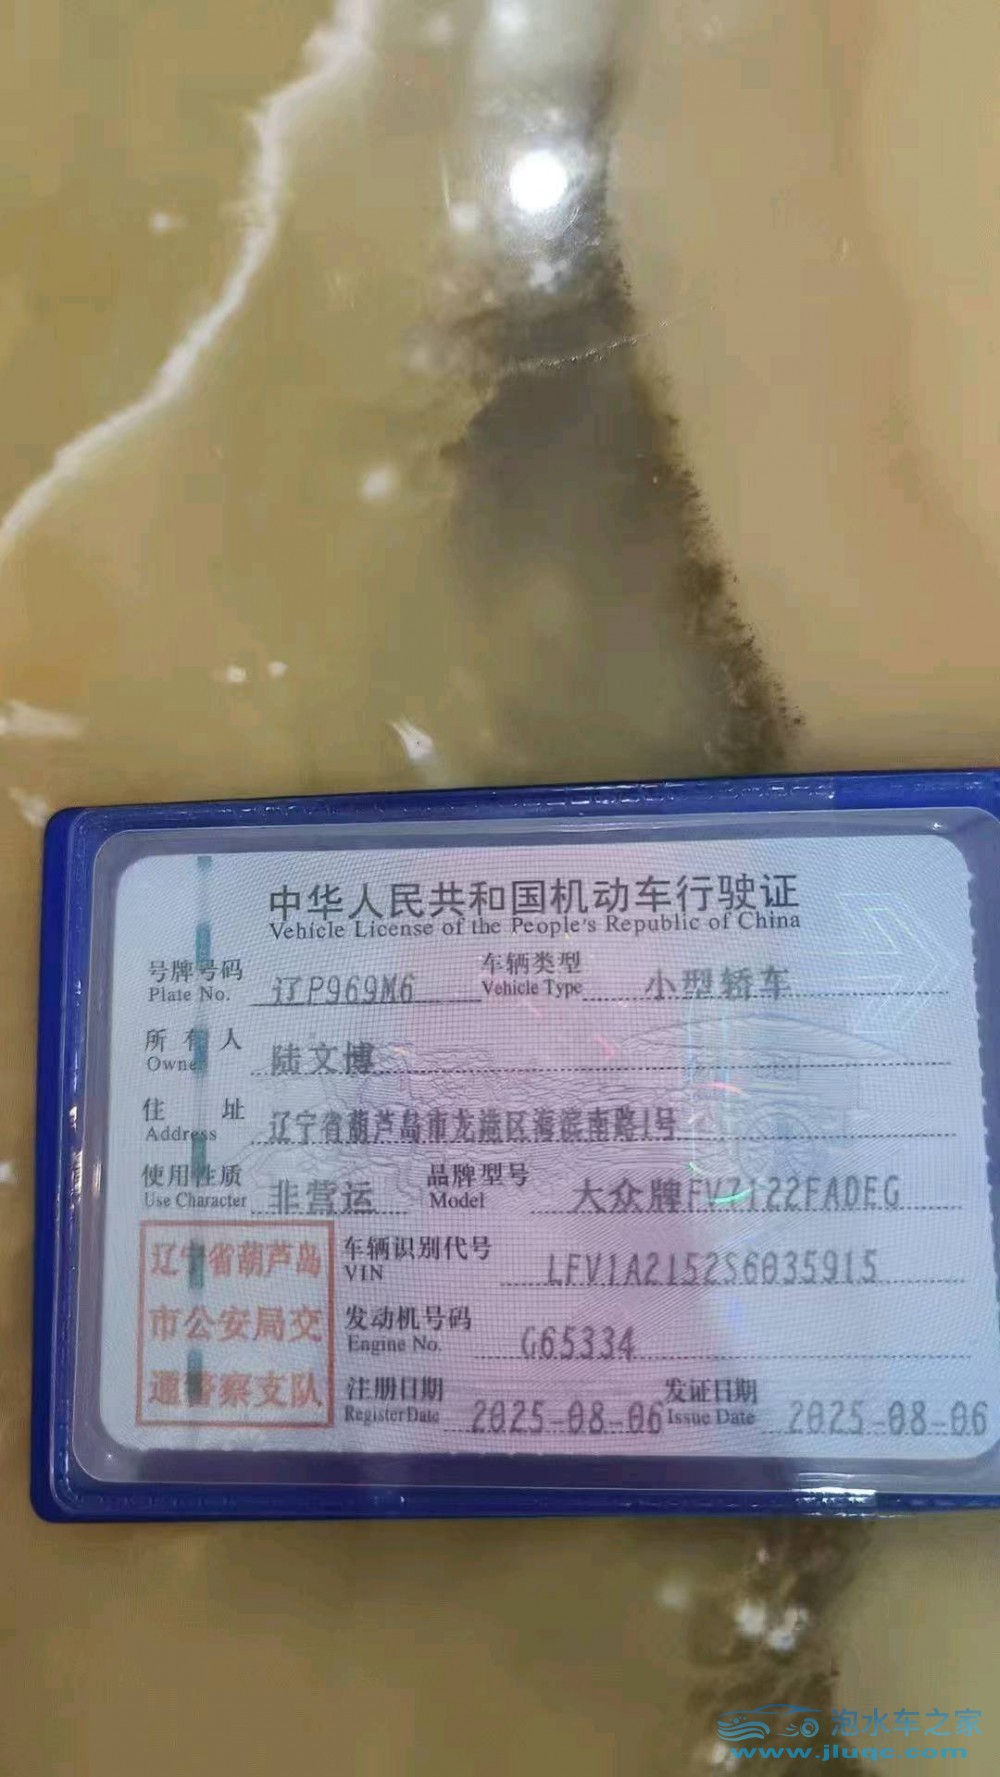 中华人民共和国机动车行驶证
Vehicle License of the People's Republic of China
号牌号码 辽P969M6 车辆类型 小型轿车
Plate No. Vehicle Type
所有人 陆文博
Owner
住址 辽宁省葫芦岛市龙港区海滨南路1号
Address
使用性质 非营运 品牌型号 大众牌FV7122FADEG
Use Character Model
辽宁省葫芦岛
市公安局交
通警察支队
车辆识别代号 LFV1A2152S6035915
VIN
发动机号码 G65334
Engine No.
注册日期 2025-08-06 发证日期 2025-08-06
Register Date Issue Date
泡水车之家
www.jluqc.com